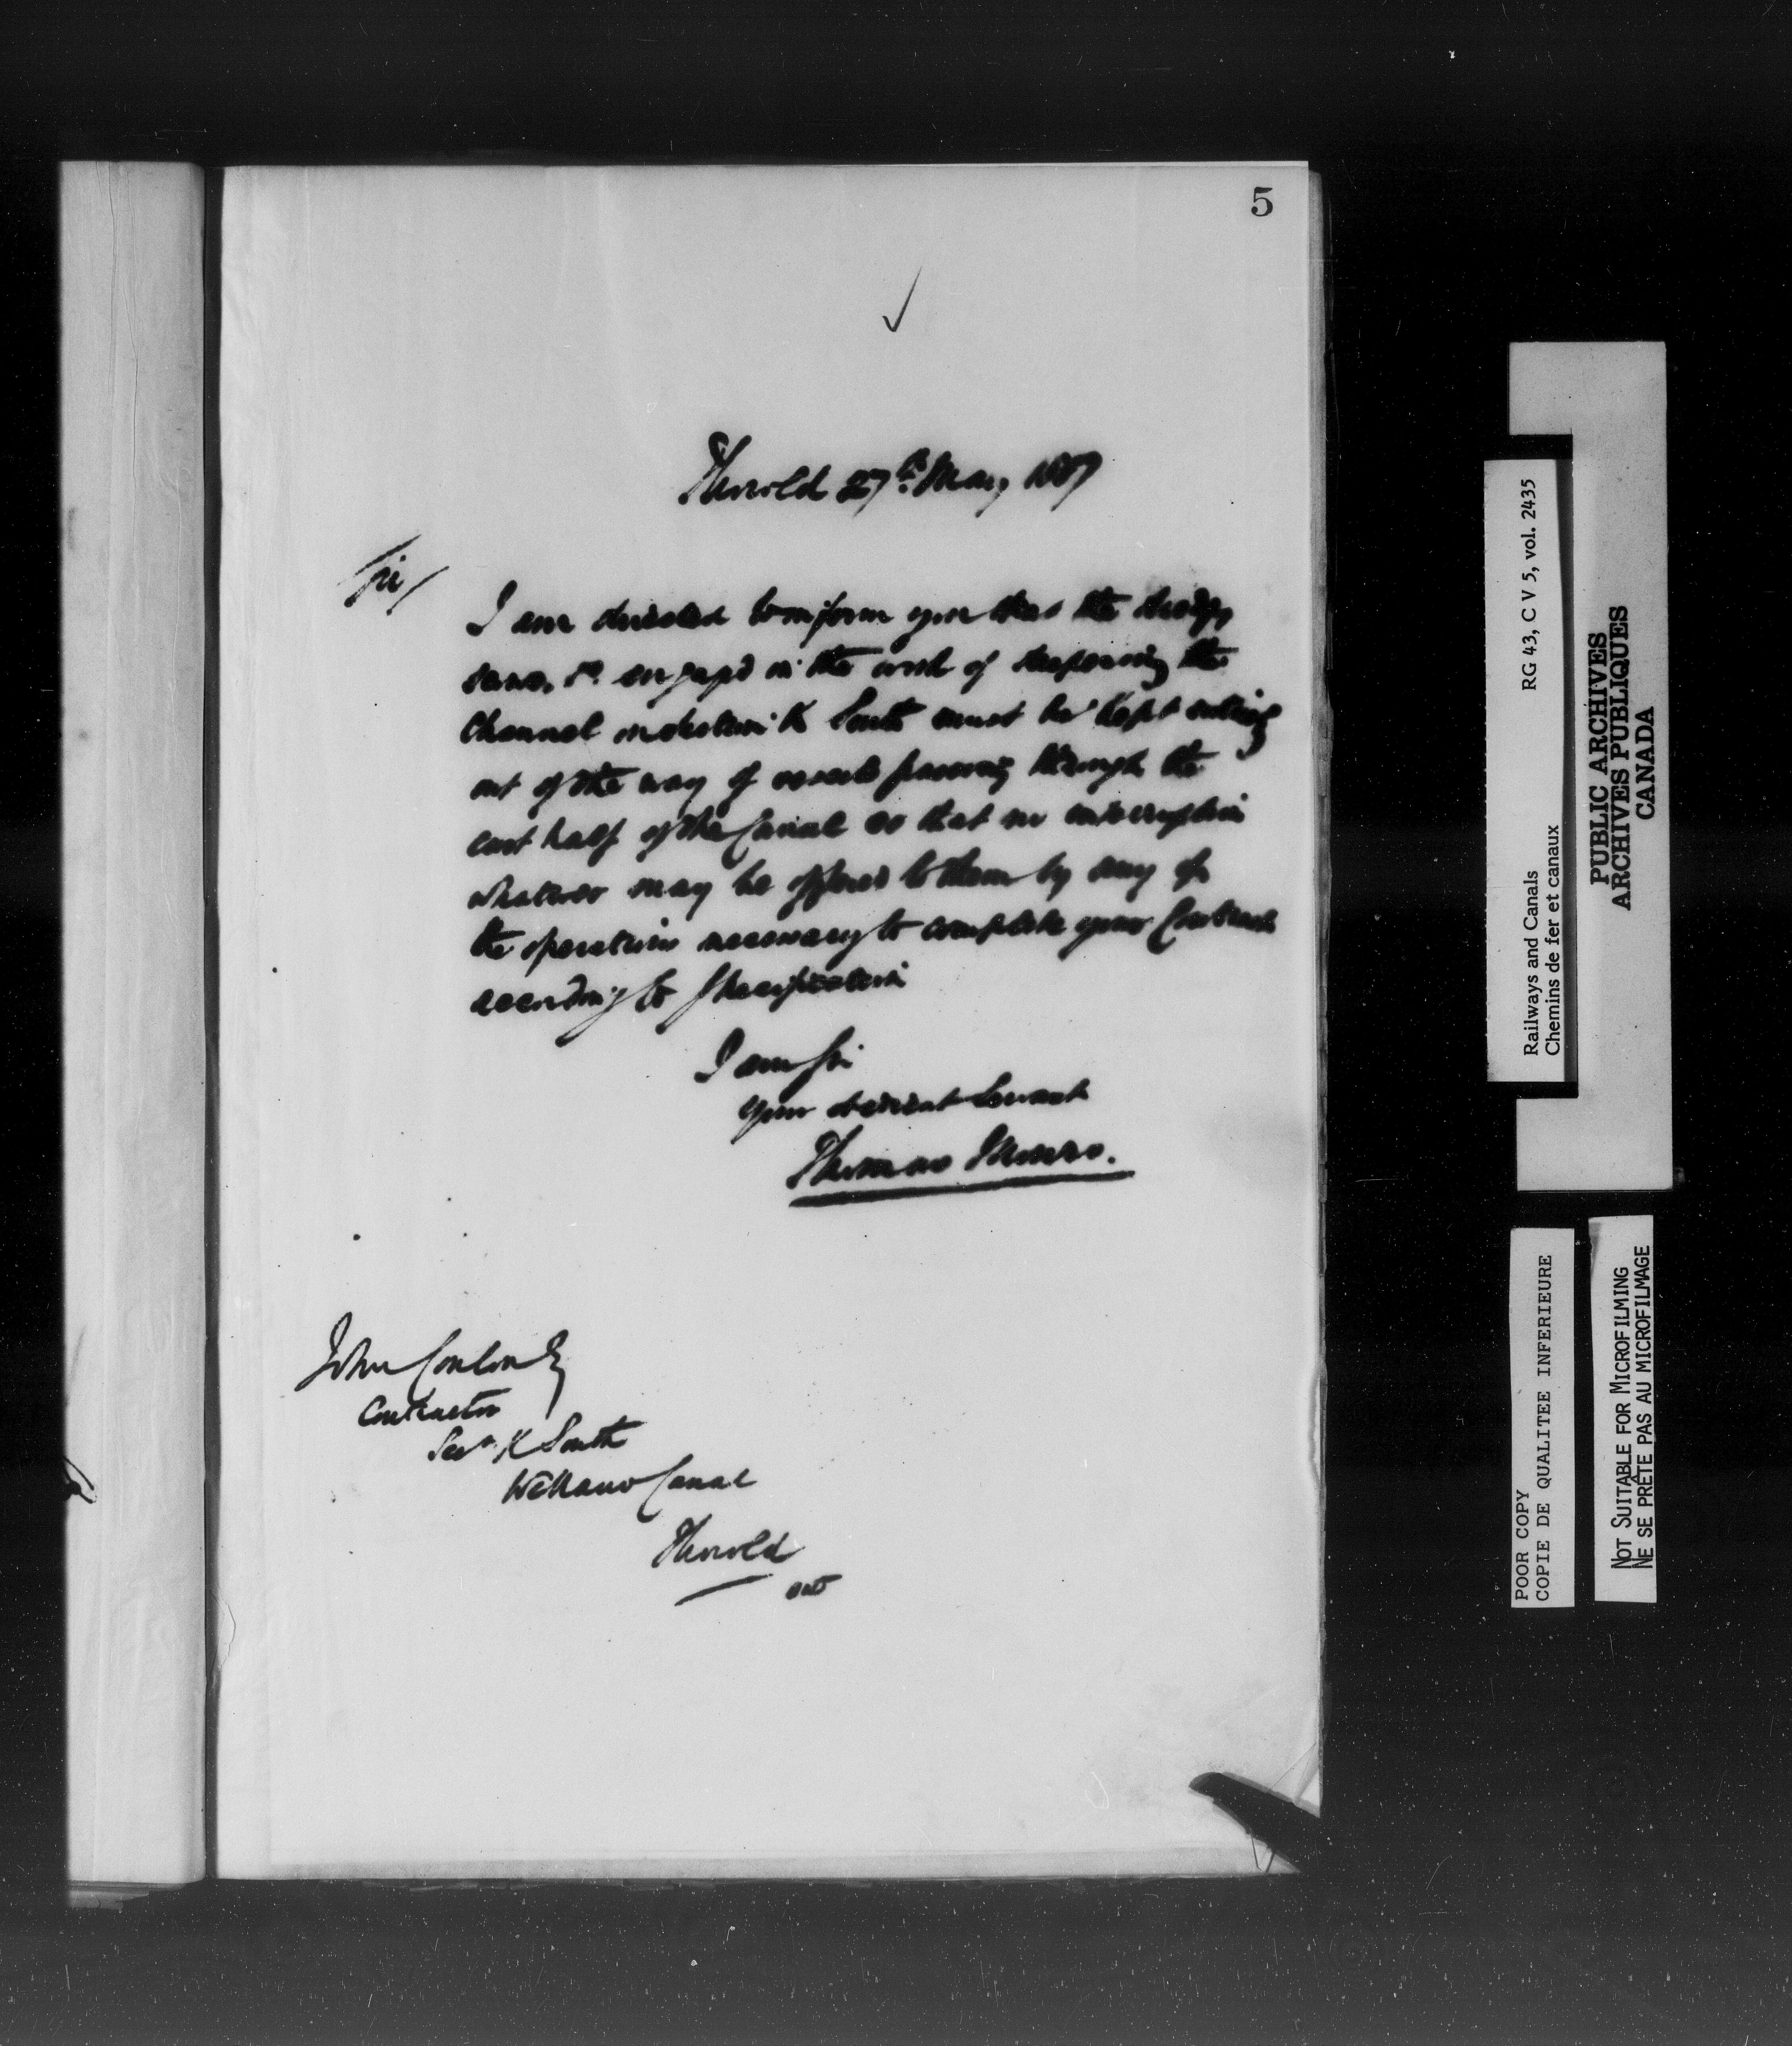 5
Thorold 27th May 1887
Sir/
I am directed to inform you that the dredges,
scows, &c. engaged in the work of deepening the
Channel in Section K South must be kept entirely
out of the way of vessels passing through the
east half of the Canal so that no interruption
whatever may be offered to them by any of
the operations necessary to complete your Contract
according to Specification
I am Sir
Your obedient Servant
Thomas Monro.
John Conlon Esq
Contractor
Secn. K South
Welland Canal
Thorold
Ont
RG 43, C V 5, vol. 2435
Railways and Canals
Chemins de fer et canaux
PUBLIC ARCHIVES
ARCHIVES PUBLIQUES
CANADA
POOR COPY
COPIE DE QUALITEE INFERIEURE
NOT SUITABLE FOR MICROFILMING
NE SE PRÊTE PAS AU MICROFILMAGE